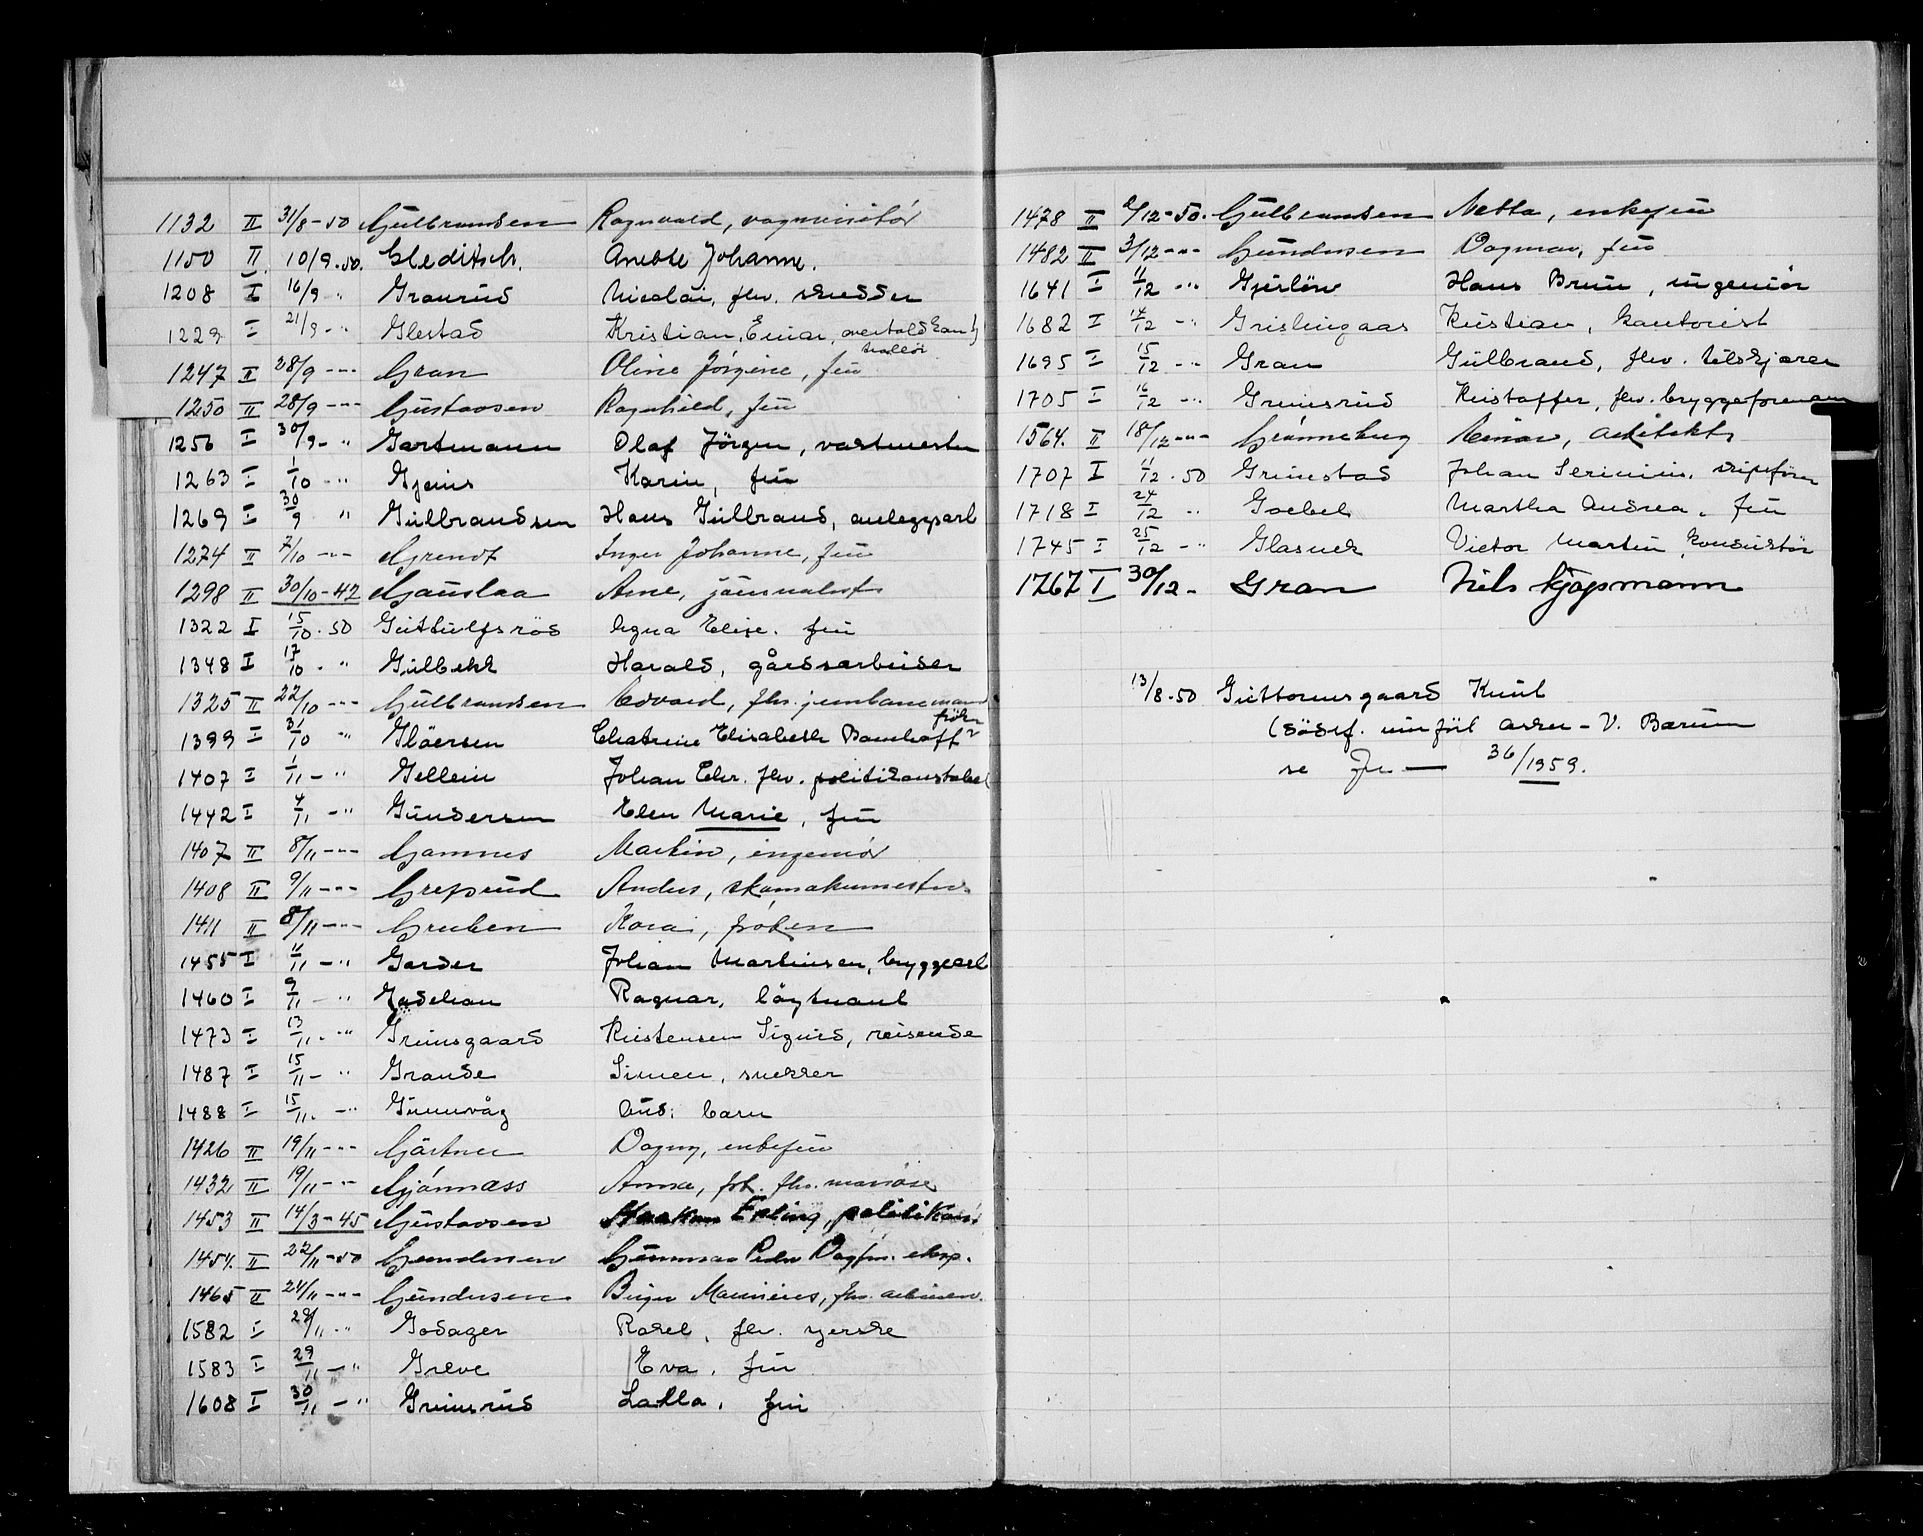 1132 II 31/8-50 Gulbrandsen Ragnvald, vognvisitör
1150 II 10/9.50. Gleditsch. Anette Johanne.
1208 I 16/9 " Granrud Nicolai, fhv. skredder
1229 I 21/9 - " Glestad Kristian Einar, overtoldkont
trollör
1247 II 28/9 -"- Gran Oline Jörgine, fru
1250 II 28/9 -"- Gustavsen Ragnhild, fru
1256 I 30/9 - " Gartmann Olaf Jörgen, vaktmester
1263 I 1/10 " Gjems Karin, fru
1269 I 30/9 " Gulbrandsen Hans Gulbrand, anleggsarb
1274 II 7/10 -"- Grendt Inger Johanne, fru
1298 II 30/10-42 Gauslaa Arne, journalist
1322 I 15/10.50 Guttulfsröd Agna Elise. fru
1348 I 17/10. " Gulbekk Harald, gårdsarbeider
1325 II 22/10 -"- Gulbrandsen Edvard, fhv. jernbanemann
1399 I 31/10 " Gläersen Chatrine Elisabeth fröken
1407 I 1/11 - " Gellein Johan Chr. fhv. politikonstabel
1442 I 4/11 - " Gundersen Elen Marie, fru
1407 II 8/11 -"- Gamnes Martin, ingeniör
1408 II 9/11 -"- Grepsrud Anders, skomakermester
1411 II 8/11 -"- Gruben Kora, fröken
1455 I 11/11 - " Garder Johan Martinsen, bryggearb
1460 I 9/11 - " Ragnar, löytnant
1473 I 13/11. " Grimsgaard Kristensen Sigurd, reisende
1487 I 15/11 - " Grande Simen, snekker
1488 I 15/11. - " Gunnvåg Aud. barn
1426 II 19/11 -"- Gärtner Dagny, enkefru
1432 II 19/11 -"- Gjönnæss Anna, frk. fhv.
1453 II 14/3-45 Gustavsen Haakon Erling, politikonst
1454. II 22/11-50 Gundersen Gunnar Peder Dagfin. eksp.
1465 II 24/11 -"- Gundersen Birger Mauritius, fhv. arbeider.
1582 I 28/11 - " Godager Rakel, fhv. syerske
1583 I 29/11 - " Greve Eva. fru
1608 I 30/11 - " Grimsrud Lalla. fru
1478 II 2/12-50. Gulbrandsen Netta, enkefru
1482 II 3/12 -"- Gundersen Dagmar, fru
1641 I 11/12 - " Gjerlöw Hans Brun, ingeniör
1682 I 14/12 - " Grislingaas Kristian, kontorist
1695 I 15/12 - " Gran Gulbrand, fhv. tilskjærer
1705 I 16/12 - " Grimsrud Kristoffer, fhv. bryggeformann
1564. II 18/12 -"- Grönneberg Einar, arkitekt
1707 I 11/12.50 Grimstad Johan Severinius. skipsförer
1718 I 24/12 " Goebel Martha Andrea. fru
1745 I 25/12 - " Glasner Victor Martin, konduktör
1767 I 30/12 - Gran Nils kjøpmann
13/8.50 Guttormsgaard Knut
(dödsf. innfört Asker - V. Bærum
se Jnr — 36/1959.